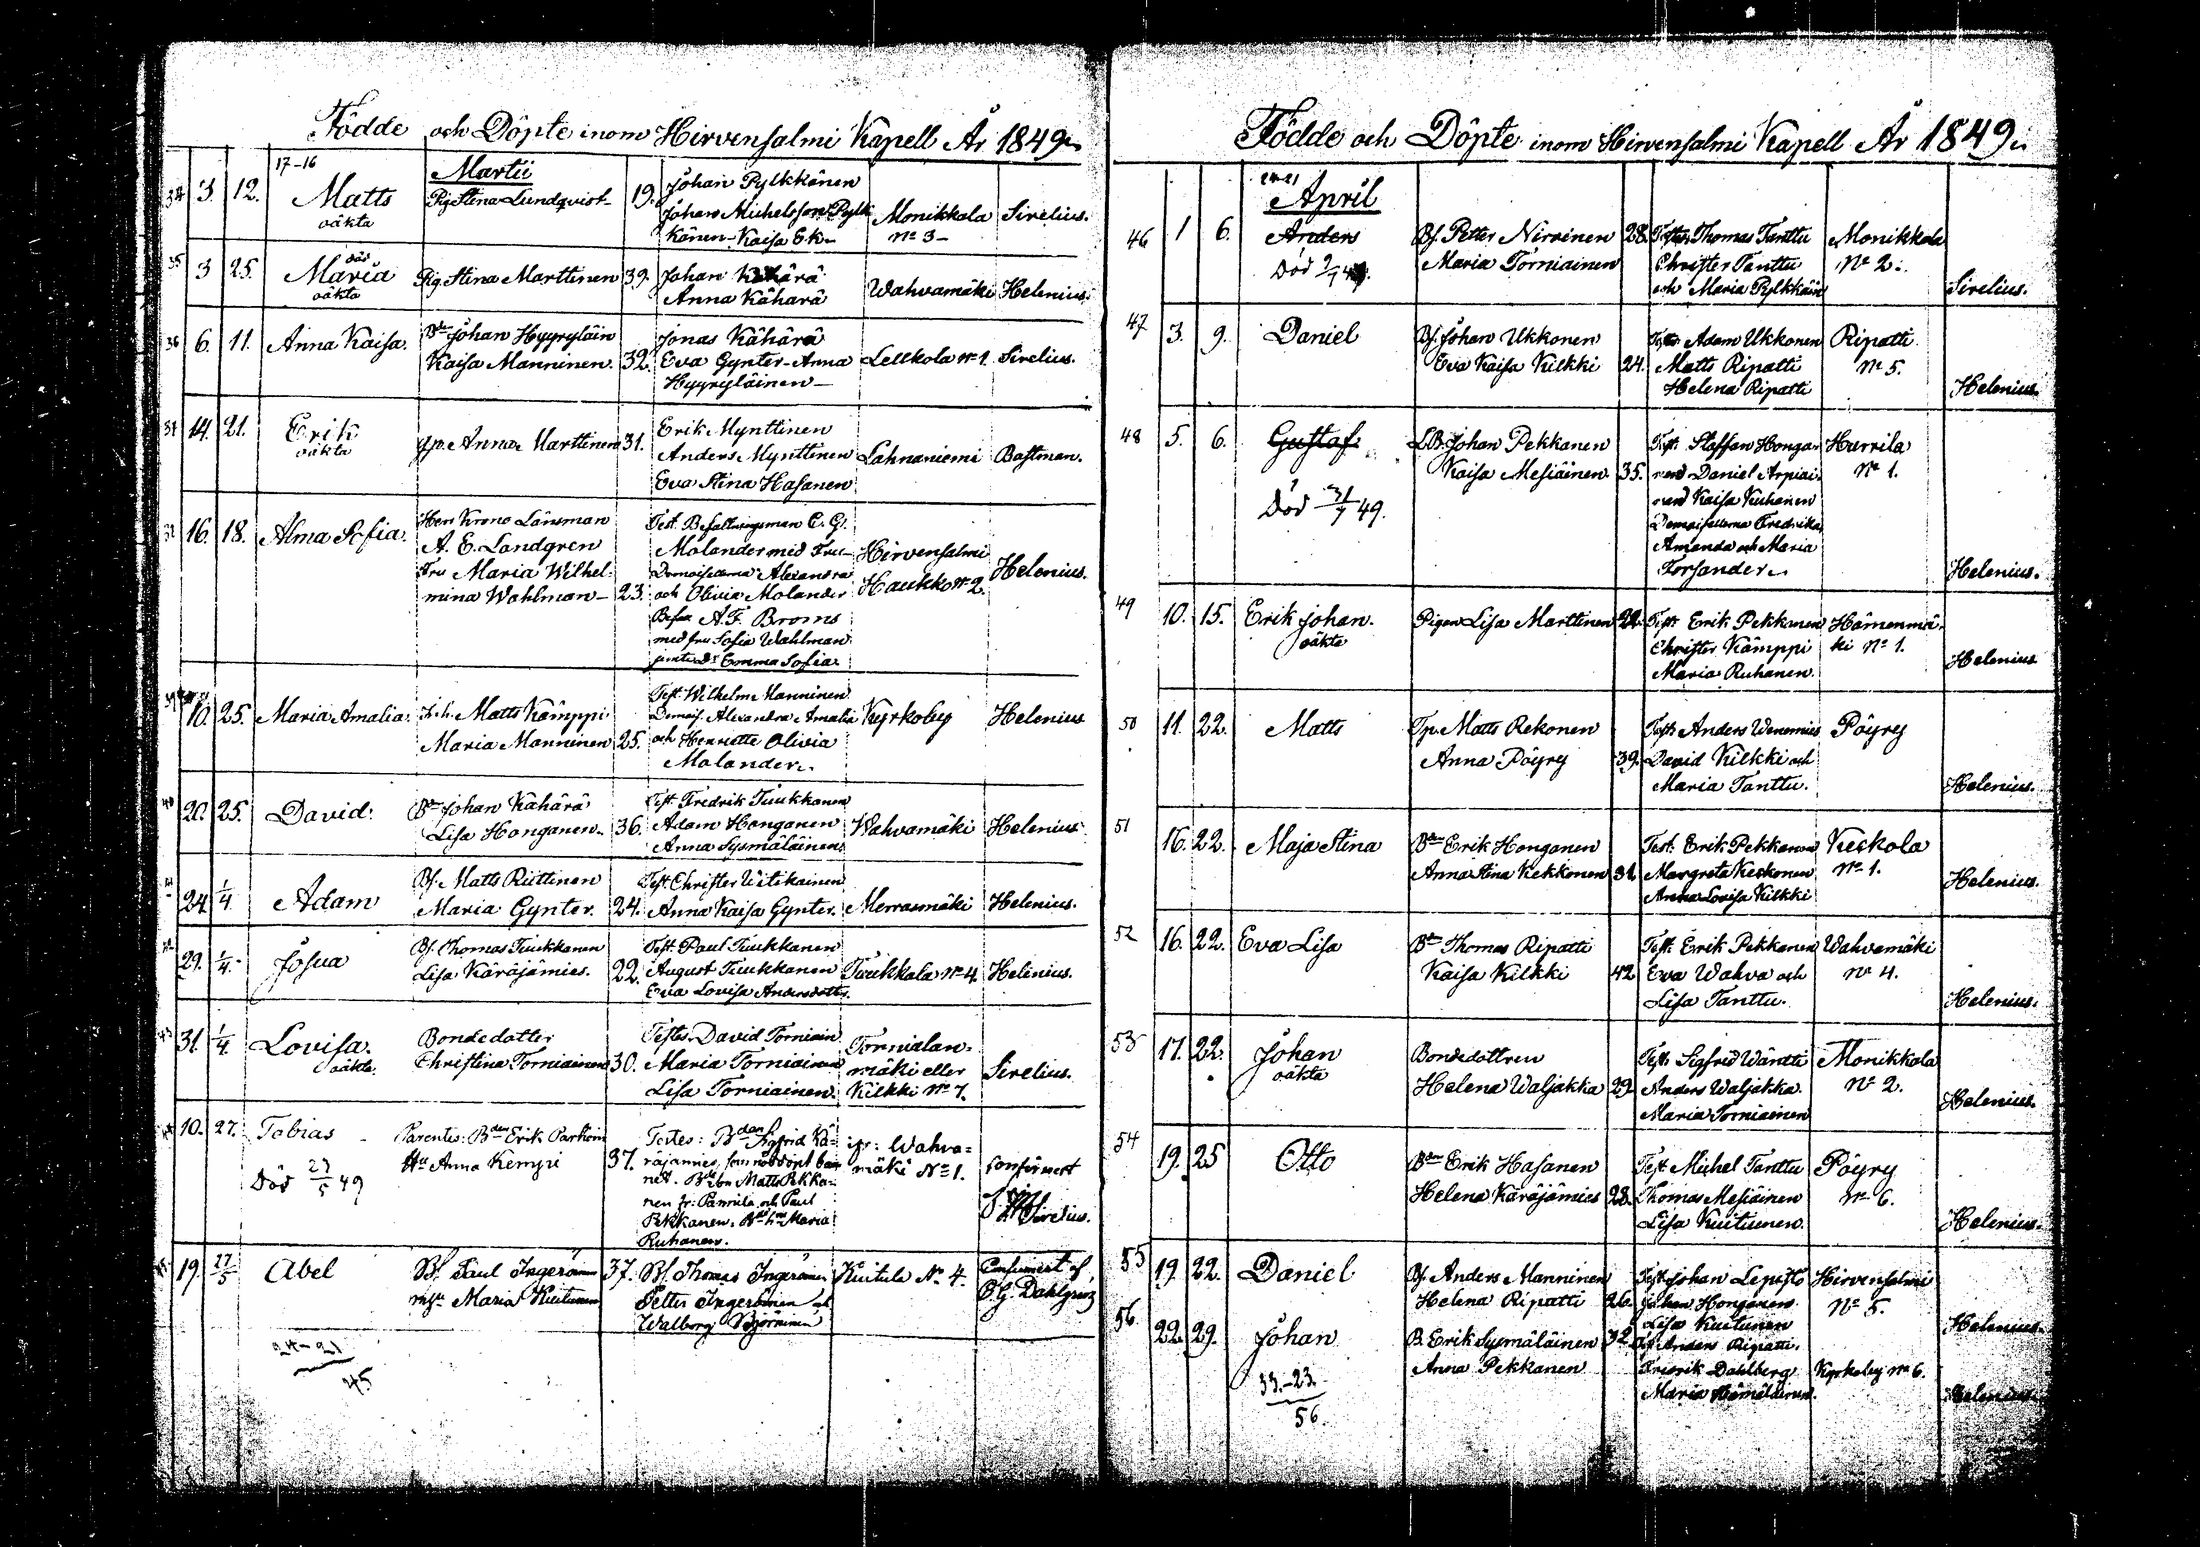 Födde och Döpte inom Hirvensalmi Kapell År 1849.
17-16
Martii
34 3. 12. Matts oäkta
Pig Stina Lundqvist 19.
Johan Pylkkänen
Johan Michelsson Pylk
känen - Kaisa Ek
Monikkala
No 3
Sirelius.
35 3 25. Maria död oäkta
Pig Stina Marttinen 39.
Johan Kähärä
Anna Kähärä
Wahvamäki Helenius.
36 6. 11. Anna Kaisa.
Bde Johan Hyyryläin
Kaisa Manninen. 32.
Jonas Kähärä
Eva Gynter - Anna
Hyyryläinen
Lellkola No 1. Sirelius.
37 14. 21. Erik oäkta
gp. Anna Marttinen 31.
Erik Mynttinen
Anders Mynttinen
Eva Stina Hasanen
Lahnaniemi Bastman.
16. 18. Alma Sofia.
Herr Krono Länsman
A. E. Landgren
Fru Maria Wilhel-
mina Wahlman 23.
Test. Befallningsman C. G.
Molander med Fru
Demoisellerna Alexandra
och Olivia Molander
A. F. Broms
med fru Sofia Wahlman
Emma Sofia
Hirvensalmi
Haukko No 2.
Helenius.
10. 25. Maria Amalia.
Matts Kämppi
Maria Manninen 25.
Test. Wilhelm Manninen
Demois. Alexandra Amalia
och Henriette Olivia
Molander.
Kyrkoby Helenius
40 20. 25. David.
Bde Johan Kähärä
Lisa Honganen. 36.
Test. Fredrik Tuukkanen
Adam Honganen
Anna Sysmäläinen
Wahvamäki Helenius
24. 1/4 Adam
Bs. Matts Riittinen
Maria Gynter. 24.
Test. Christer Uitikainen
Anna Kaisa Gynter.
Merrasmäki Helenius.
29. 1/4. Josua
Bs. Thomas Tuukkanen
Lisa Käräjämies. 22.
Test. Paul Tuukkanen
August Tuukkanen
Eva Lovisa Andersdotter
Tuukkala No 4. Helenius.
31. 1/4. Lovisa. oäkta.
Bondedotter
Christina Torniainen 30.
Testes. David Torniain
Maria Torniainen
Lisa Torniainen.
Tornialan-
mäki eller
Kilkki No 7.
Sirelius.
10. 27. Tobias
Död 27/5 49
Parentes: Bden Erik Parkoin
Hu Anna Kemppi 37.
Testes: Bdan Sigfrid Kä-
räjämies, som nöddöpt bar-
net. Matts Pekka-
nen fr: Pämilä och Paul
Pekkanen. Maria
Ruhanen.
Wahva-
mäki No 1.
confirmert
Sirelius.
19. 27/5 Abel
Bs. Paul Ingeroinen
Maria Kuitunen 37.
Bs. Thomas Ingeroinen
Petter Ingeroinen och
Walborg Björninen
Kuitula No 4.
Confirmert af
C. G. Dahlgren
24-21
45
Födde och Döpte inom Hirvensalmi Kapell År 1849.
24-21
April
46 1 6. Anders
Död 9/4 49.
Bs. Petter Nirvinen 28.
Maria Torniainen
Testes Thomas Tanttu
Christer Tanttu
och Maria Pylkkäin
Monikkala
No 2.
Sirelius.
47 3. 9. Daniel
Bs. Johan Ukkonen
Eva Kaisa Kilkki 24.
Testes Adam Ukkonen
Matts Ripatti
Helena Ripatti
Ripatti
No 5.
Helenius.
48 5. 6. Gustaf.
Död 31/7 49.
Johan Pekkanen
Kaisa Mesiäinen. 35.
Test. Staffan Hongan
nen Daniel Arpiai-
nen Kaisa Kuhanen
Demoisellerna Fredrika
Amanda och Maria
Forsander.
Hurrila
No 1.
Helenius.
49 10. 15. Erik Johan. oäkta
Pigan Lisa Marttinen 22.
Test. Erik Pekkanen
Christer Kämppi
Maria Ruhanen.
Hämenmä-
ki No 1.
Helenius
50 11. 22. Matts
Tp. Matts Rekonen
Anna Pöyry 39.
Test. Anders Wenemies
David Kilkki och
Maria Tanttu.
Pöyry
Helenius.
51 16. 22. Maja Stina
Bde Erik Honganen
Anna Stina Kekkonen 31.
Test. Erik Pekkanen
Margreta Keskonen
Anna Lovisa Kilkki
Keskola
No 1.
Helenius.
52 16. 22. Eva Lisa
Bde Thomas Ripatti
Kaisa Kilkki 42
Test. Erik Pekkanen
Eva Wahva och
Lisa Tanttu.
Wahvamäki
No 4.
Helenius.
53 17. 22. Johan oäkta
Bondedottren
Helena Waljakka 29.
Test. Sigfrid Wäntti
Anders Waljakka.
Maria Torniainen
Monikkala
No 2.
Helenius.
54 19. 25 Otto
Bde Erik Hasanen
Helena Käräjämies 28.
Test. Michel Tanttu
Thomas Mesiäinen
Lisa Kuitunen.
Pöyry
No 6.
Helenius.
55 19. 22. Daniel
Bs. Anders Manninen
Helena Ripatti 26.
Test. Johan Lepistö
Johan Honganen
Lisa Kuitunen
Hirvensalmi
No 5.
Helenius
56 22. 29. Johan
B. Erik Sysmäläinen 32
Anna Pekkanen
Test. Anders Ripatti.
Fredrik Dahlberg
Maria Hämäläinen.
Kyrkoby No 6.
Helenius.
33.-23.
56.